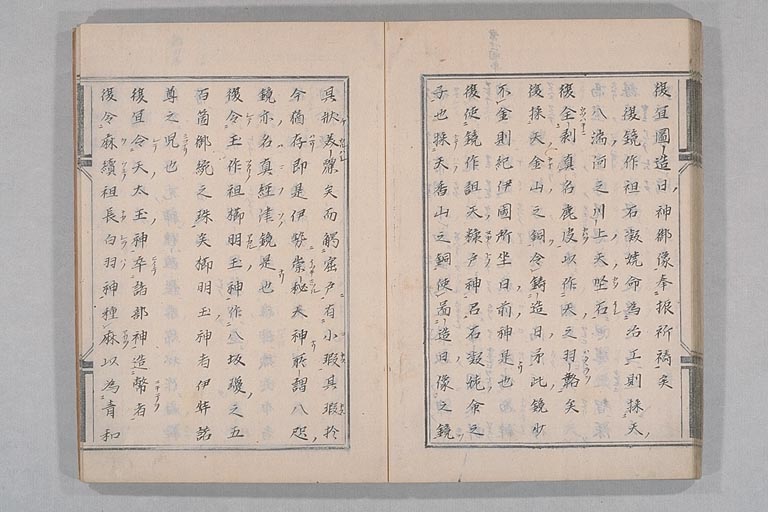 復宜圖造日神御像奉振祈禱矣
復鏡作祖石凝燒命為治工則採天
安河之川上天堅石
復全剥真名鹿皮以作天之羽韛矣
復採天金山之銅令鑄造日矛此鏡少
不金則紀伊國所坐日前神是也
復使鏡作祖天糠戶神石凝燒命之
子也採天香山之銅使圖造日像之鏡
其狀美麗矣而觸窟戶有小瑕其瑕於
今猶存即是伊勢崇秘天神所謂八咫
鏡亦名真經津鏡是也
復令玉作祖櫛明玉神作八坂瓊之五
百箇御統之珠矣櫛明玉神者伊弉諾
尊之兒也
復宜令天太玉神率諸部神造幣者
復令麻續祖長白羽神種麻以為青和